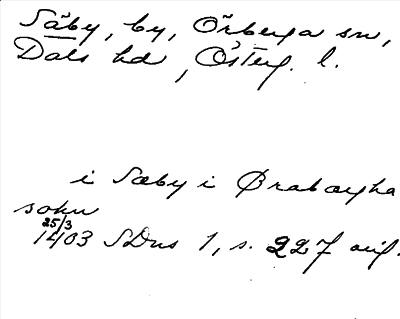 Säby, by, Örberga sn,
Dals hd, Österg. l.
i Sæby i Ørabærgha
sokn
25/3
1403 SDns 1, s. 227 avj.